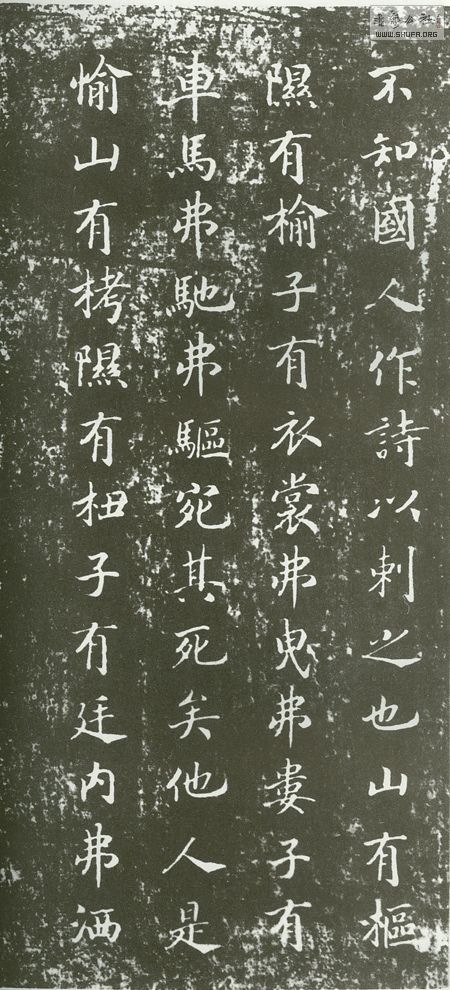 不知國人作詩以刺之也山有樞
隰有榆子有衣裳弗曳弗婁子有
車馬弗馳弗驅宛其死矣他人是
愉山有栲隰有杻子有廷内弗洒
WWW.SHUFA.ORG